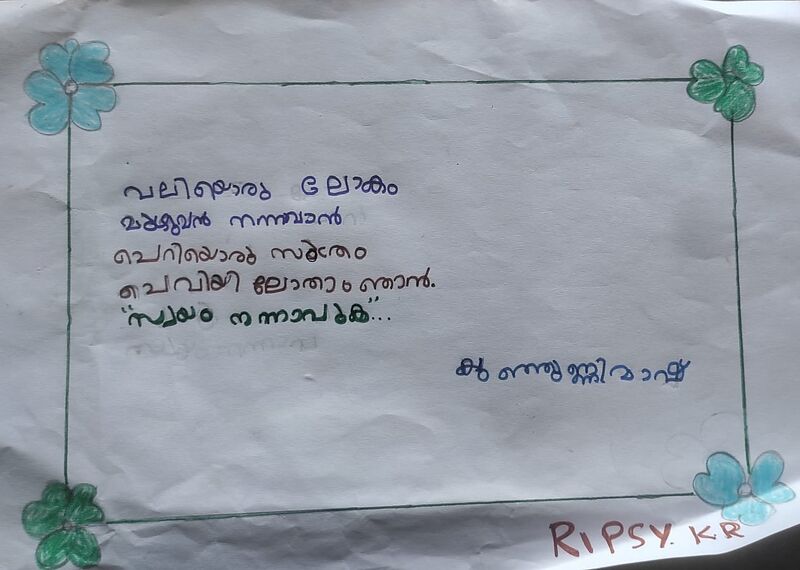 വലിയൊരു ലോകം
മുഴുവൻ നന്നാവാൻ
ചെറിയൊരു സൂത്രം
ചെവിയിലോതാം ഞാൻ.
"സ്വയം നന്നാവുക"...
കുഞ്ഞുണ്ണിമാഷ്
RIPSY. KR